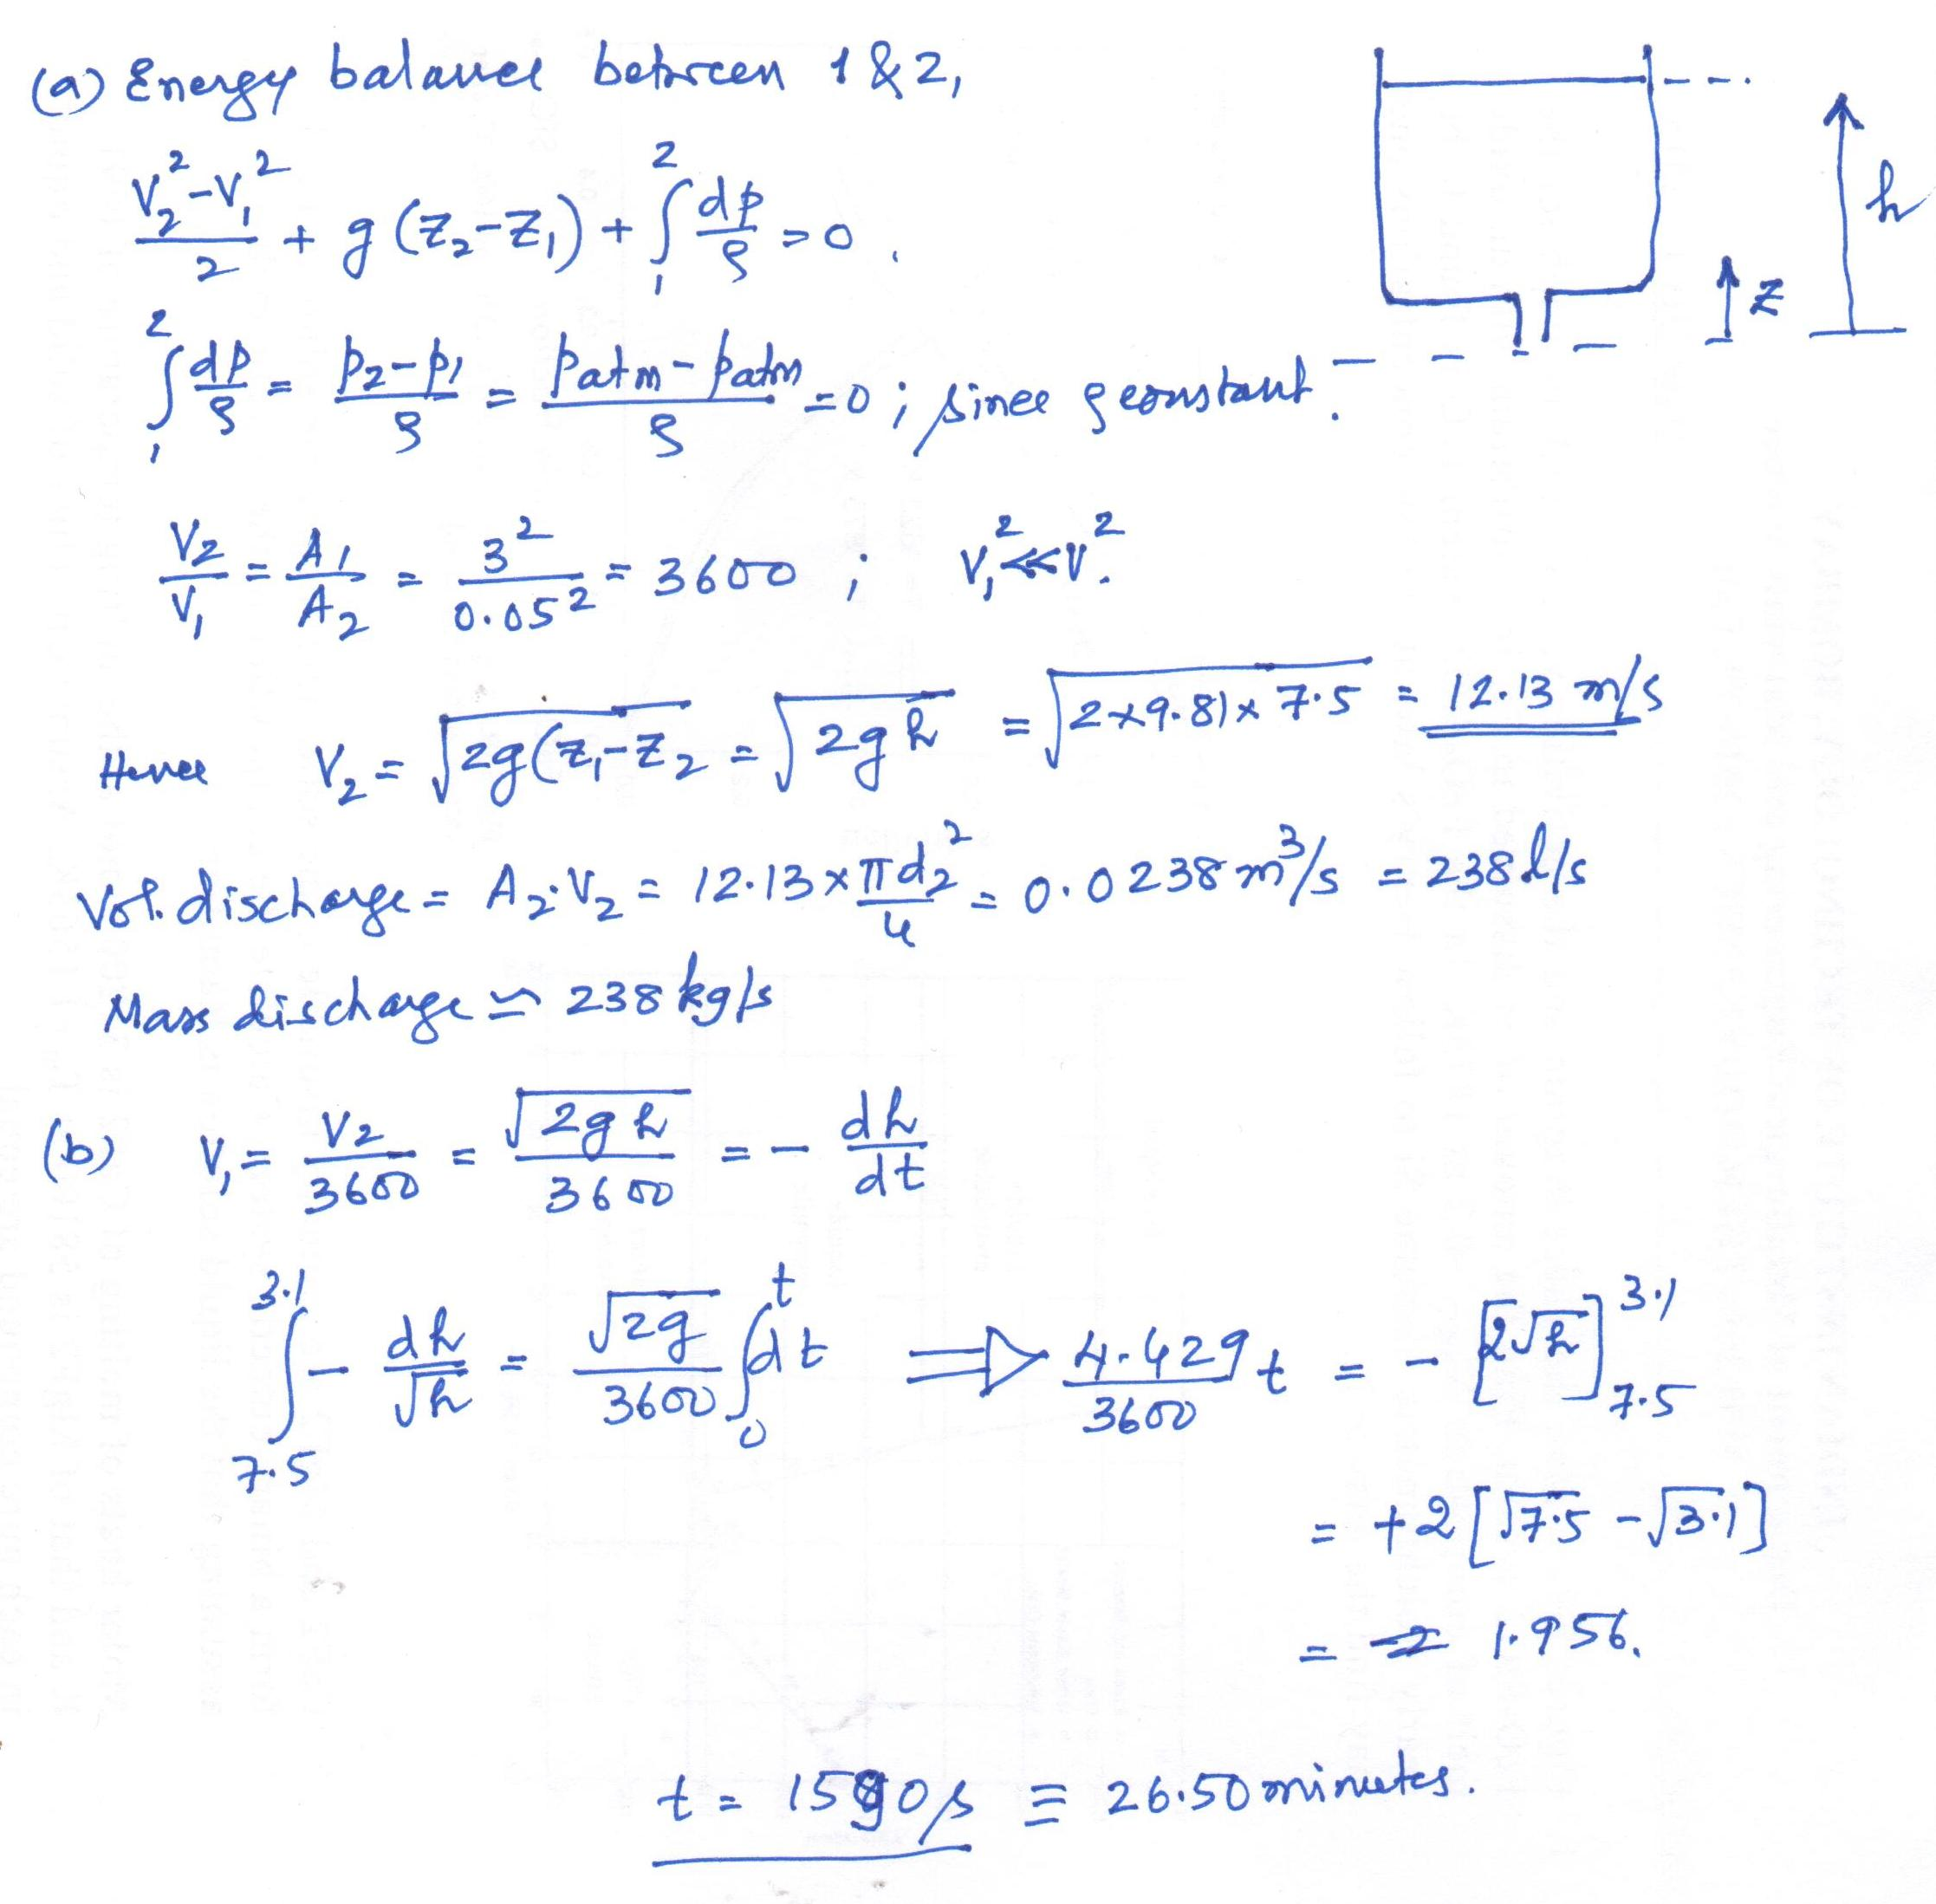 (a) Energy balance between 1 & 2,
(V₂² – V₁²)/2 + g (Z₂ – Z₁) + ∫₁² dp/ρ = 0 .
h
z
∫₁² dp/ρ = (p₂ – p₁)/ρ = (patm – patm)/ρ = 0 ; since ρ constant.
V₂/V₁ = A₁/A₂ = 3²/0.05² = 3600 ; V₁² << V².
Hence V₂ = √2g(Z₁ – Z₂ = √2gh = √2×9.81×7.5 = 12.13 m/s
Vol. discharge = A₂·V₂ = 12.13 × πd₂²/4 = 0.0238 m³/s = 238 l/s
Mass discharge ≃ 238 kg/s
(b) V₁ = V₂/3600 = √2gh/3600 = – dh/dt
∫_7.5^3.1 – dh/√h = √2g/3600 ∫₀^t dt ⟹ 4.429/3600 t = – [2√h]_7.5^3.1
= +2 [√7.5 – √3.1]
= 1.956.
t = 1590 s ≡ 26.50 minutes.